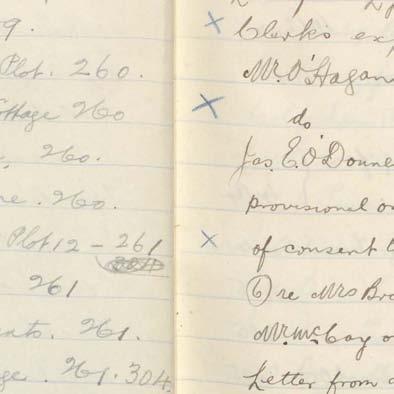 9.
Plot. 260.
ottage 260
260.
re. 260.
Plot 12 - 261
261
nts. 261.
ge. 261. 304
Clerks ex
Mr. O'Hagan
do
Jas. E. O'Donne
provisional o
of consent
(6) re Mrs Bro
Mr. McCay o
Letter from